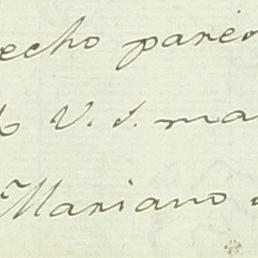 echo parec
V. S. ma
Mariano